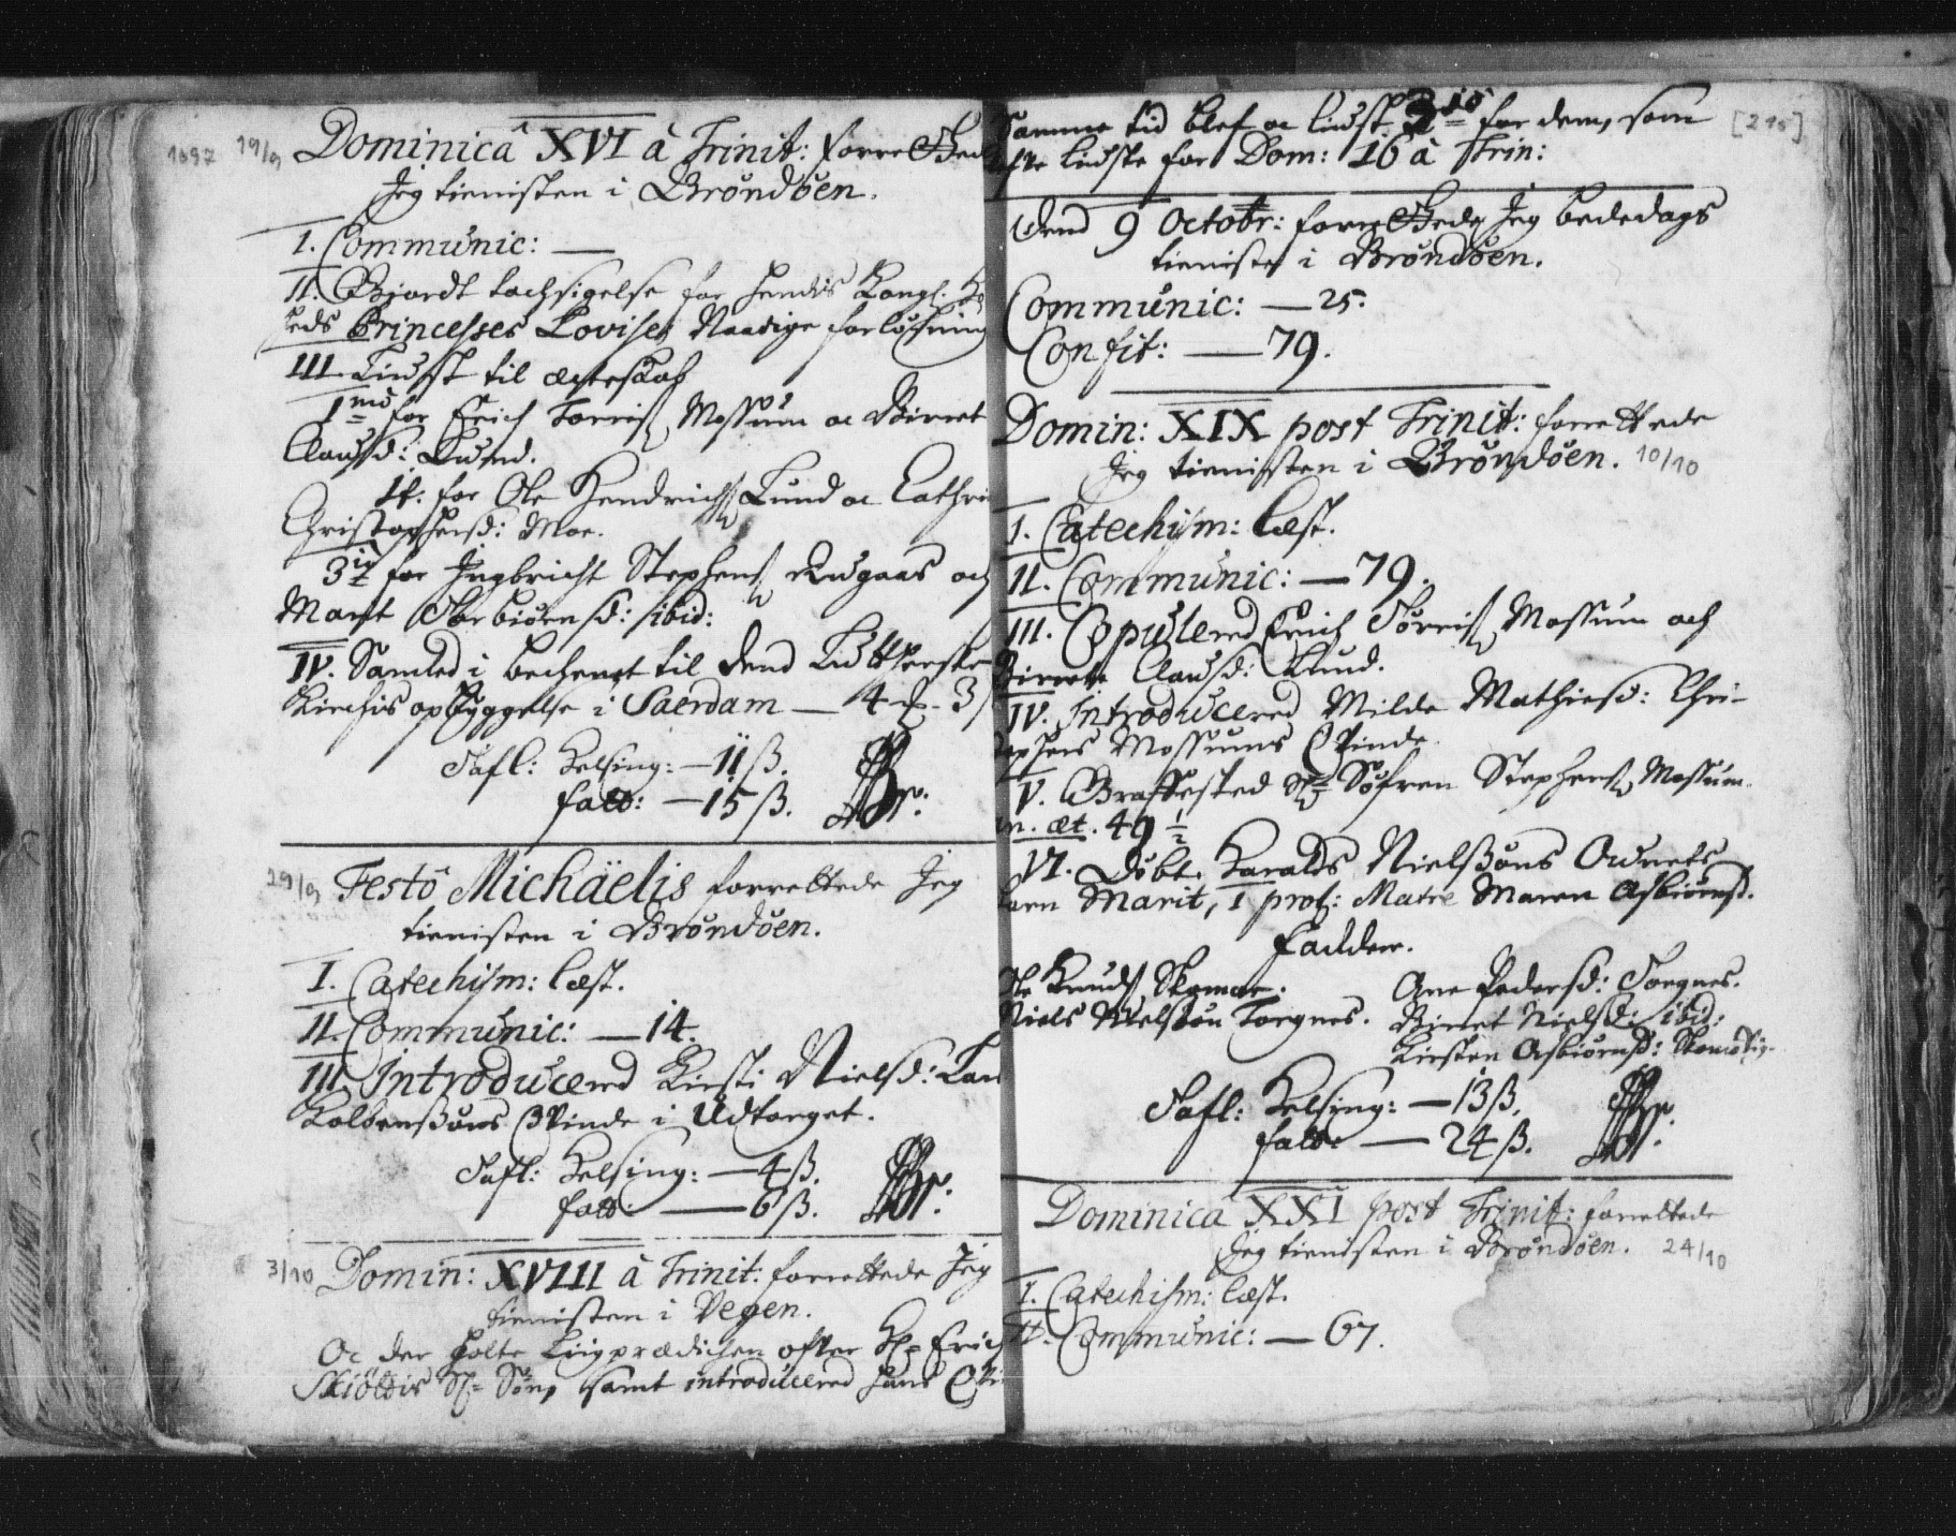 1697 19/9 Dominicâ XVI à Trinit: forrettede
Jeg tienisten i Brøndøen.
I. Communic: —
II. Gjordt tachsigelse for hendis Kongl:
heds Princesses Lovises Naadige forløsning
III. Liust til ægteskab
1mo for Erich Torris Mossum oc Birret
Clausd: Lund.
II. for Ole Hendrichs Lund oc Cathri
Christophersd: Moe.
3io for Ingbricht Stephens Rugaas och
Marit Thorbiørensd: ibid:
IV. Samled i bechenet til dend Lutherske
Kirchis opbyggelse i Saerdam — 4 3
Tafl: Helsing: — 11 ß.
fatt: — 15 ß.
29/9 Festô Michäelis forrettede Jeg
tienisten i Brøndøen.
I. Catechism: læst.
II. Communic: — 14.
III. Introducered Kirsti Nielsd:
Kolbensøns Qvinde i Udtorget.
Tafl: Helsing: — 4 ß.
fatt: — 6 ß.
3/10 Domin: XVIII à Trinit: forrettede Jeg
tienisten i Vegen.
Oc der holte Liigprædichen ofver Erich
Skiøldis Søn, samt introducered hans
Samme tid blef oc liust 3io for dem, som [215]
liuste for Dom: 16 à Trin:
Dend 9 Octobr: forrettede Jeg bededags
tieniste i Brøndøen.
Communic: — 25.
Confit: — 79.
Domin: XIX post Trinit: forrettede
Jeg tienisten i Brøndøen. 10/10
I. Catechism: læst.
II. Communic: — 79.
III. Copulered Erich Torris Mossum och
Birrete Clausd: Lund.
IV. Introducered Milde Mathiesd: Chri-
stophers Mossums Qvinde.
V. Graffested Søfren Stephens Mossum.
an. æt. 49 1/2
VI. Døbt Haralds Nielsøns
barn Marit, I prof: Matre Maren Asbiørnsd.
Faddere.
Ole Knuds Skomoe. Ane Pedersd: Torgnes.
Niels Nielsøn Torgnes. Birret Nielsd: ibid:
Kirsten Asbiørnsd:
Tafl: Helsing: — 13 ß.
fatt: — 24 ß.
Dominica XXI post Trinit: forrettede
Jeg tienisten i Brøndøen. 24/10
I. Catechism: læst.
II. Communic: — 67.